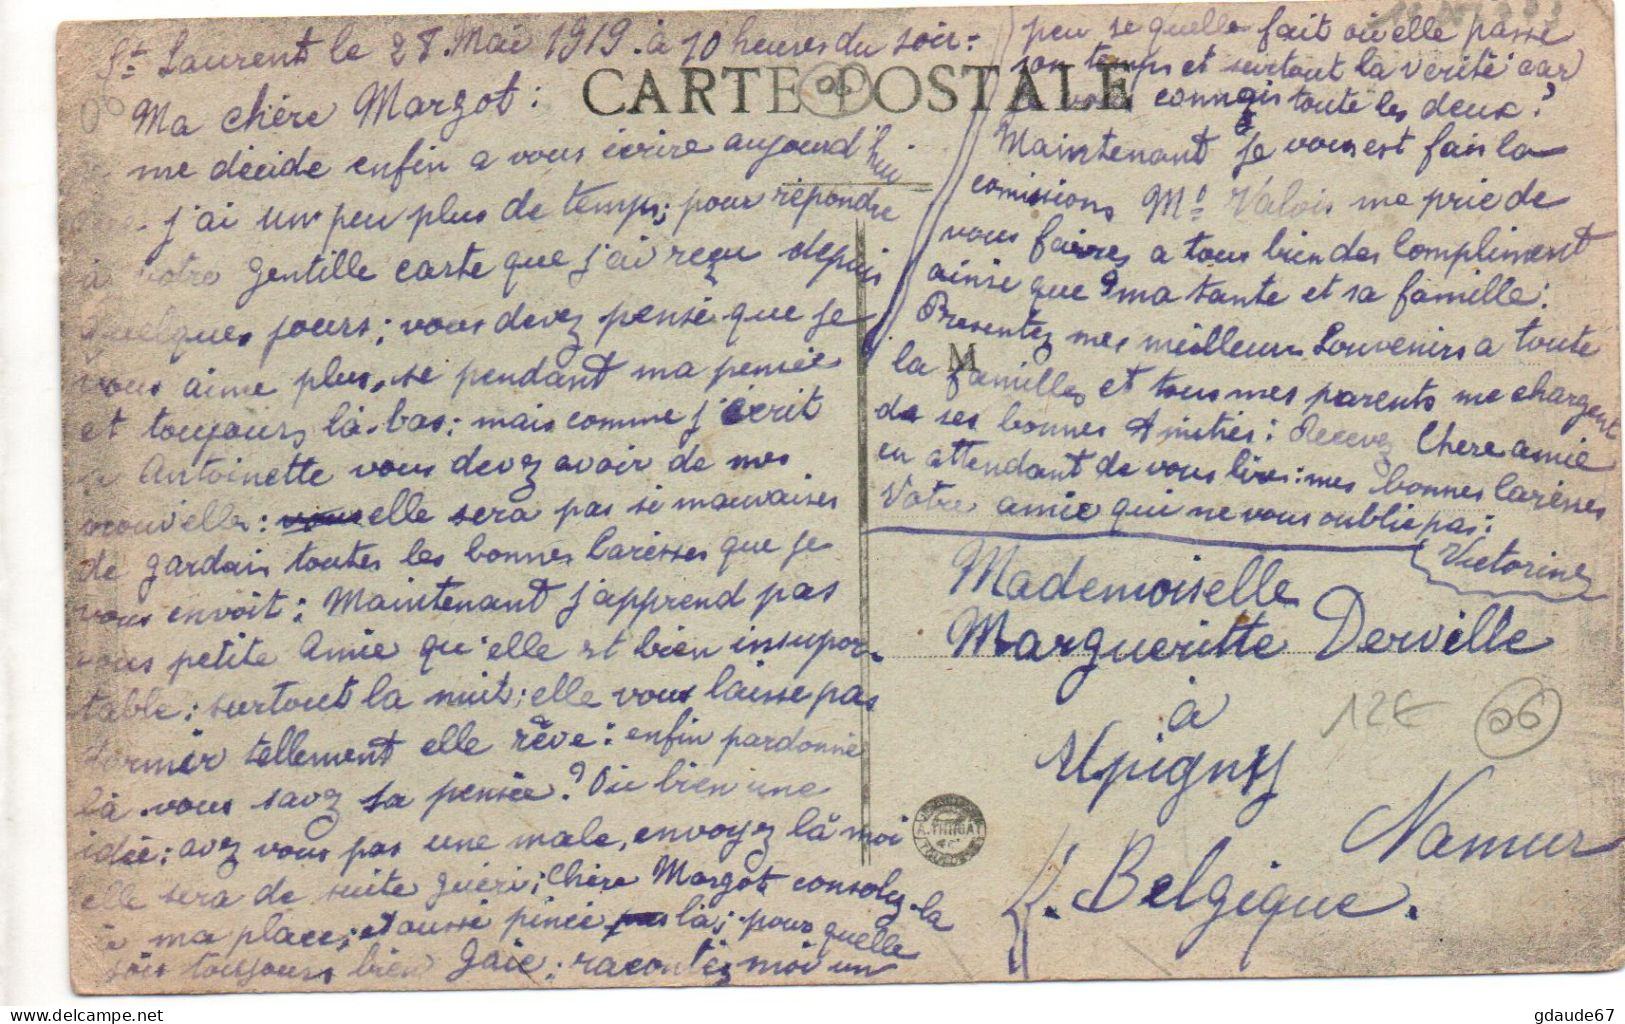 St Laurent le 28 Mai 1919. à 10 heures du soir:
CARTE POSTALE
Ma chère Margot:
me décide enfin a vous écrire aujourd'hui
j'ai un peu plus de temps; pour répondre
à votre gentille carte que j'ai reçu depuis
quelques jours; vous devez pensé que je
vous aime plus, se pendant ma pensée
et toujours là-bas; mais comme j'écrit
a Antoinette vous devez avoir de mes
nouvelles: elle sera pas si mauvaises
de gardais toutes les bonnes Caresses que je
vous envoit; Maintenant j'apprend pas
vous petite Amie qu'elle et bien insupor-
table; surtout la nuit; elle vous laisse pas
dormir tellement elle rêve: enfin pardonné
là vous savez sa pensée? Ou bien une
idée; avez vous pas une male, envoyez là moi
elle sera de suite guéri; Chère Margot consolez-la
à ma place; et aussé pinée là; pour quelle
sois toujours bien Gaie; racontez moi un
peu se quelle fait où elle passe
son temps et surtout la vérité car
je vous connais toute les deux?
Maintenant je vous est fais la
comissions Mo Valois me prie de
vous faires a tous bien des Compliment
ainse que ma tante et sa famille:
Presentez mes meilleurs Souvenirs a toute
la familles et tous mes parents me chargent
de ses bonnes Amitiés: Recevez Chere amie
en attendant de vous lire: mes bonnes Caresses
Votre amie qui ne vous oublie pas:
Victorine
M
Mademoiselle
Margueritte Derville
à
Upigny
Namur
Belgique.
12€
06
06
gdaude67